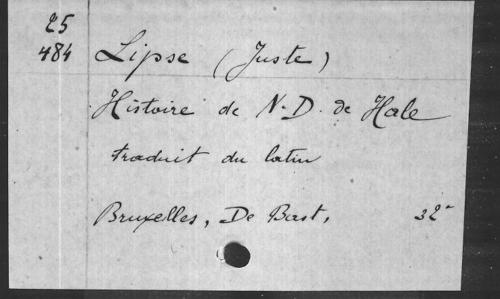 25
484
Lipse (Juste)
Histoire de N.-D. de Hale
traduit du latin
Bruxelles, De Bast, 32°